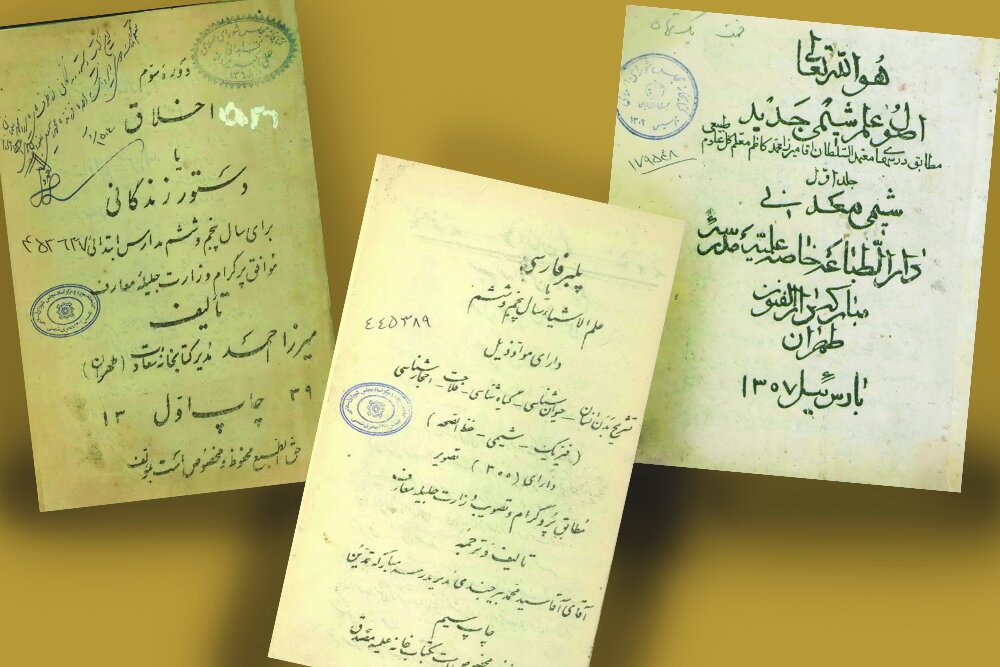 دورهٔ سوم
اخلاق
یا
دستور زندگانی
برای سال پنجم و ششم مدارس ابتدائی
۴۵۲۶۳۷
موافق پرگرام وزارت جلیله معارف
تألیف
میرزا احمد مدیر کتابخانه سعادت (طهران)
چاپ اول
۱۳ ۳۹
حق الطبع محفوظ و مخصوص است بمولف
پلبر فارسی
یا
علم الاشیاء سال پنجم و ششم
۴۴۵۳۸۹
دارای مواد ذیل
تشریح بدن انسان - حیوان‌شناسی - گیاه شناسی - فلاحت - احجار شناسی
(فیزیک - شیمی - حفظ الصحه)
دارای (۳۰۰) تصویر
مطابق پروگرام و تصویب وزارت جلیله معارف
تألیف و ترجمه
آقای آقا سید محمد بیرجندی مدیر مدرسه مبارکه تمدن
چاپ سیم
مخصوص است بکتابخانه علمیه
قیمت یکتومان
هو الله تعالی
اصول علم شیمی جدید
مطابق درسهای معتمد السلطان آقا میرزا محمد کاظم معلم کل علوم طبیعی
۱۷۹۵۴۸
جلد اول
شیمی معدنی
دار الطباعه خاصه علمیه مدرسه
مبارکه دار الفنون
طهران
بارس ئیل ۱۳۰۷